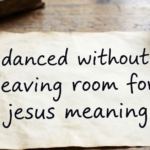 danced without
eaving room for
jesus meaning